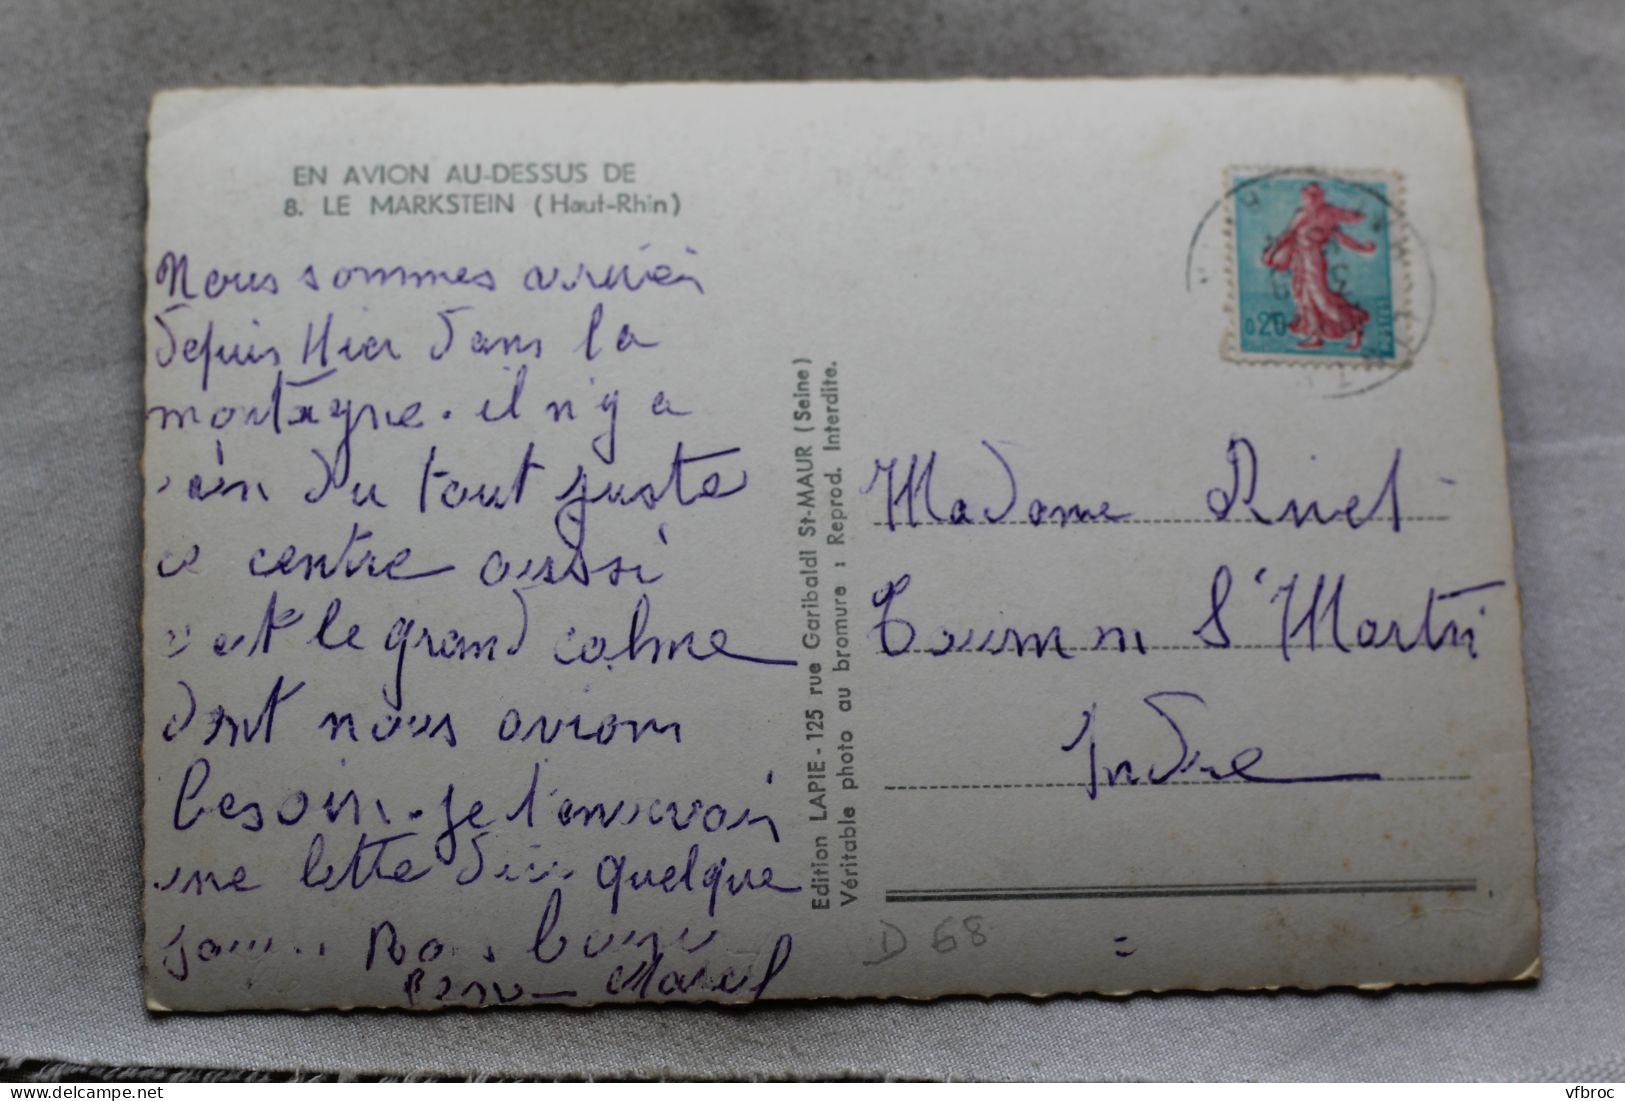 EN AVION AU-DESSUS DE
8. LE MARKSTEIN (Haut-Rhin)
Nous sommes arrivés
depuis Hier dans la
montagne. il n'y a
rien du tout juste
ce centre aussi
c'est le grand calme
dont nous avions
besoin. je t'enverrai
une lettre d'ici quelque
jour. Bons
Marcel
Edition LAPIE - 125 rue Garibaldi St-MAUR (Seine)
Véritable photo au bromure : Reprod. Interdite.
0,20
Madame Rivet
Tournon St Martin
Indre
D 68
vfbroc